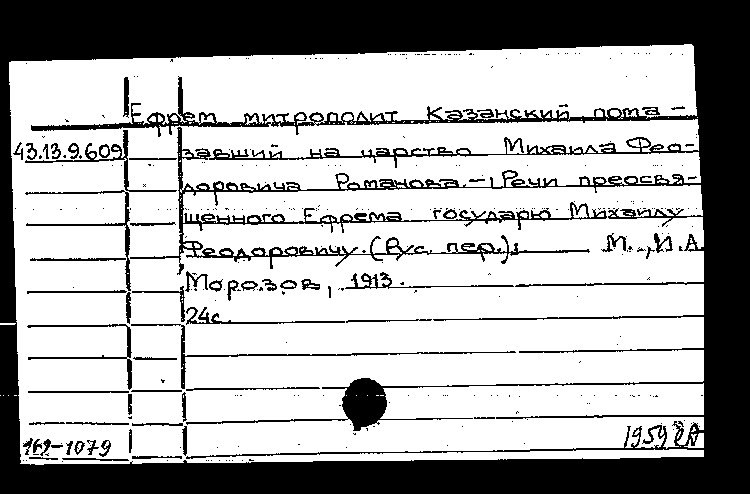 Ефрем митрополит Казанский, пома-
43.13.9.609 завший на царство Михаила Фео-
доровича Романова.-; Речи преосвя-
щенного Ефрема государю Михаилу
Феодоровичу. (Рус. пер.); М., И.А.
Морозов, 1913.
24с.
169-1079 1959